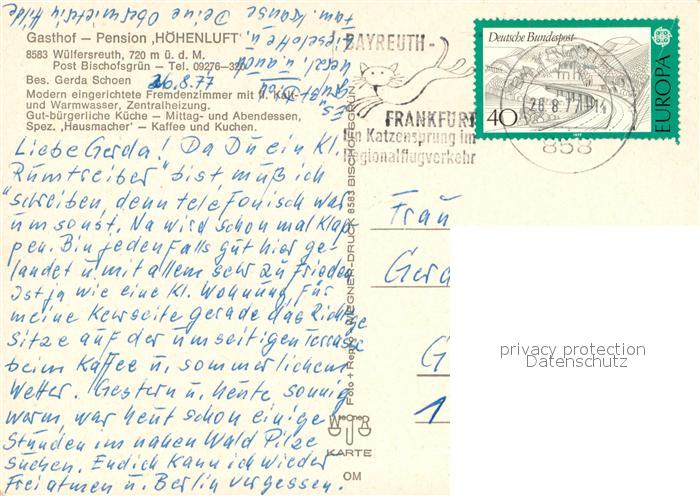 Gasthof – Pension „HÖHENLUFT"
8583 Wülfersreuth, 720 m ü. d. M.
Post Bischofsgrün – Tel. 09276–326
Bes. Gerda Schoen
26.8.77
Modern eingerichtete Fremdenzimmer mit fl. Kalt-
und Warmwasser, Zentralheizung.
Gut-bürgerliche Küche – Mittag- und Abendessen,
Spez. „Hausmacher" – Kaffee und Kuchen.
Liebe Gerda! Da Du ein Kl.
"Rumtreiber" bist, muß ich
schreiben, denn telefonisch war
umsonst. Na wird schon mal klap-
pen. Bin jedenfalls gut hier ge-
landet u. mit allem sehr zufrieden
Ist ja wie eine Kl. Wohnung, für
meine Kehrseite gerade das Richtige
Sitze auf der umseitigen Terrasse
beim Kaffee u. sommerlichem
Wetter. Gestern u. heute sonnig
warm, war heut schon einige
Stunden im nahen Wald Pilze
suchen. Endlich kann ich wieder
Freiatmen u. Berlin vergessen.
Es grüßt Dich
Liselotte u.
Fam. Krause
Deine Obermieterin Hilde
Foto + Repro WEGNER-DRUCK 8583 BISCHOFSGRÜN
WEGNER
KARTE
OM
BAYREUTH-
FRANKFURT
Im Katzensprung im
Regionalflugverkehr
26.8.77
858
Deutsche Bundespost
40
EUROPA
1977
Frau
Gerd
G
1
privacy protection
Datenschutz